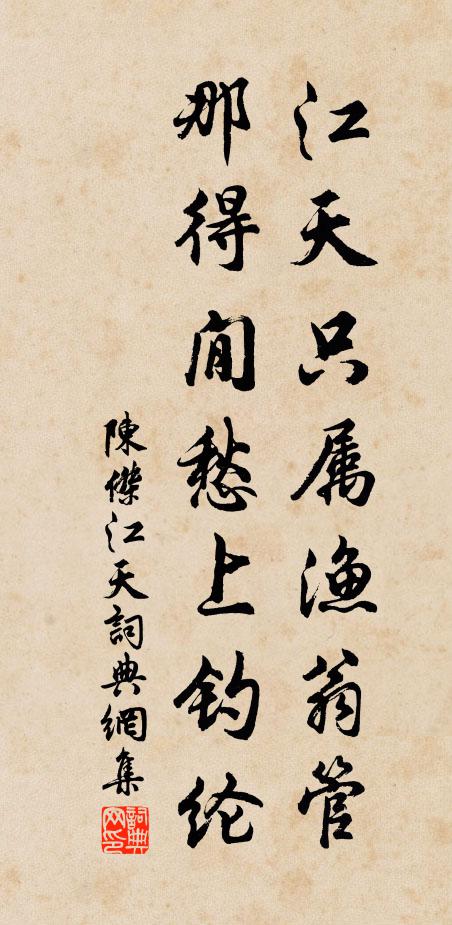 江天只属渔翁管
那得闲愁上钓纶
陳傑江天詞典網集
詞典网印